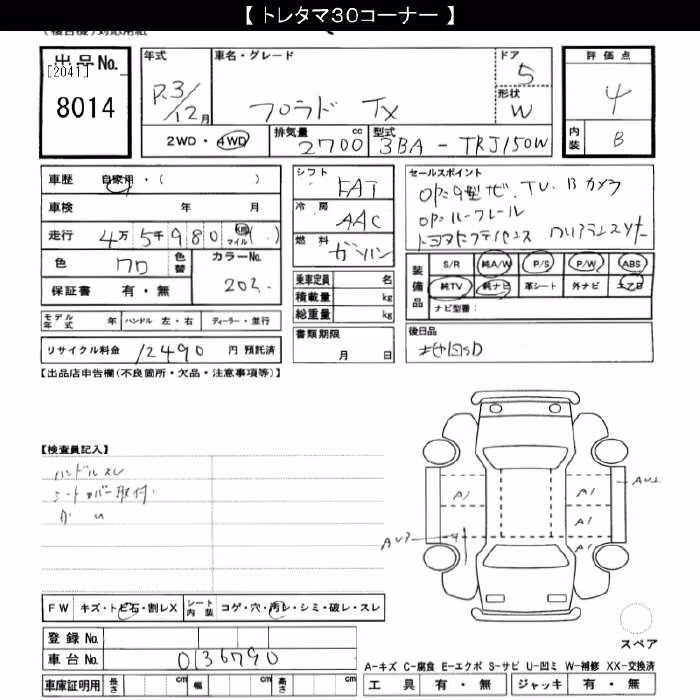 【 トレタマ30コーナー 】
出品No.
[2041]
8014
年式
R.3/12月
車名・グレード
プラド TX
ドア
5
形状
W
評価点
4
内装
B
2WD・4WD
排気量
2700
cc
型式
3BA - TRJ150W
車歴 自家用・( )
車検 年 月
走行 4万5千980 km マイル ( )
色 クロ
色替
カラーNo.
202
保証書 有・無
モデル年式 年
ハンドル 左・右
ディーラー・並行
リサイクル料金 12490 円 預託済
シフト
FAT
冷房
AAC
燃料
ガソリン
乗車定員 名
積載量 kg
総重量 kg
書類期限
月 日
セールスポイント
OP:9型ナビ.TV.Bカメラ
OP:ルーフレール
装備品
S/R 純A/W P/S P/W ABS
純TV 純ナビ 革シート 外ナビ エアB
ナビ型番:
後日品
地図SD
【出品店申告欄(不良箇所・欠品・注意事項等)】
【検査員記入】
ハンドルスレ
シートカバー取付
A1
A1
A1
A1
AU2
AU3
FW
キズ・トビ石・割レX
シート内装
コゲ・穴・汚レ・シミ・破レ・スレ
登録No.
車台No. 0136790
車庫証明用 長さ cm 幅 cm 高さ cm
スペア
A-キズ C-腐食 E-エクボ S-サビ U-凹ミ W-補修 XX-交換済
工具 有・無 ジャッキ 有・無